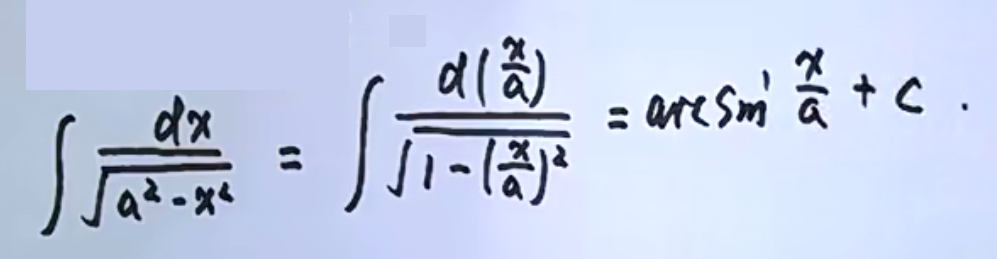 ∫ dx/√(a² - x²) = ∫ d(x/a)/√(1 - (x/a)²) = arcsin x/a + c .